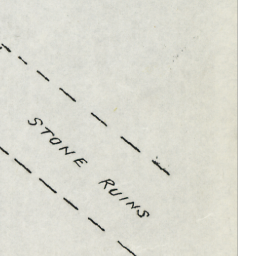 STONE RUINS